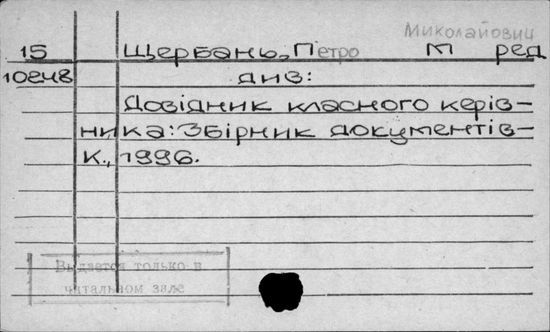 Миколайович
15 Щербань, Петро М ред
10248 див:
Довідник класного керів-
ника: Збірник документів-
К., 1996.
Выдается только в
читальном зале